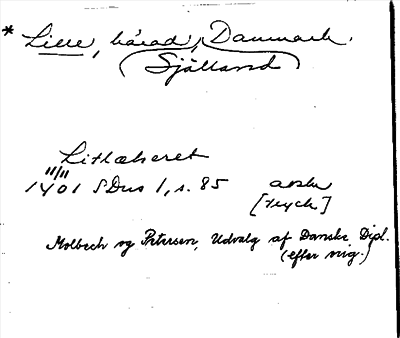 * Lille, härad, Danmark.
(Själland)
Litlæheret
11/11
1401 SDns 1, s. 85 avskr
[tryck]
Molbech og Petersen, Udvalg af Danske Dipl.
(efter orig.)